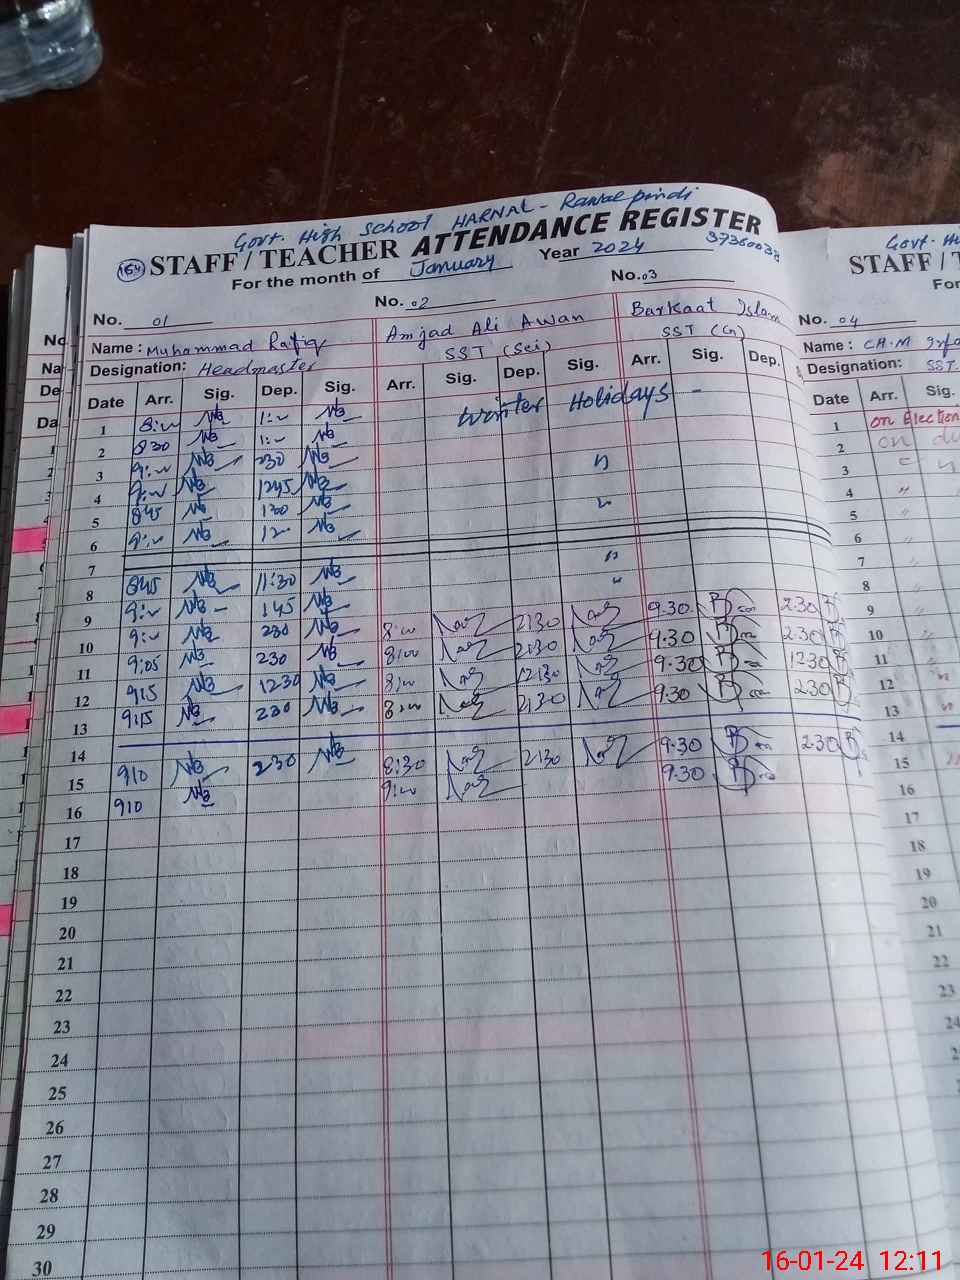 Govt. High School HARNAL - Rawalpindi
164 STAFF / TEACHER ATTENDANCE REGISTER
37360038
For the month of January Year 2024
No. 01 No. 02 No. 03
Name : Muhammad Rafiq Amjad Ali Awan Barkaat Islam
Designation: Headmaster SST (Sci) SST (G)
Date Arr. Sig. Dep. Sig. Arr. Sig. Dep. Sig. Arr. Sig. Dep.
Winter Holidays -
1 8:00 1:00
2 830 1:00
3 9:00 230
4 9:00 1245
5 845 130
6 9:00 12
7
8 845 11:30
9 9:00 145
10 9:00 230 8:00 2:30 9.30 2.30
11 9:05 230 8:00 2:30 9.30 2.30
12 915 1230 8:00 12:30 9.30 1230
13 9:15 230 8:00 2:30 9.30 2.30
14
15 910 230 8:30 2:30 9.30 2.30
16 910 9:00 9.30
17
18
19
20
21
22
23
24
25
26
27
28
29
30
Govt. Hi
STAFF / T
For
No. 04
Name : CH.M Irfa
Designation: SST
Date Arr. Sig.
1 on Election
2 on du
3
4 "
5 "
6
7 "
8
9 "
10 "
11
12 "
13 "
14
15 "
16
17
18
19
20
21
22
23
24
16-01-24 12:11